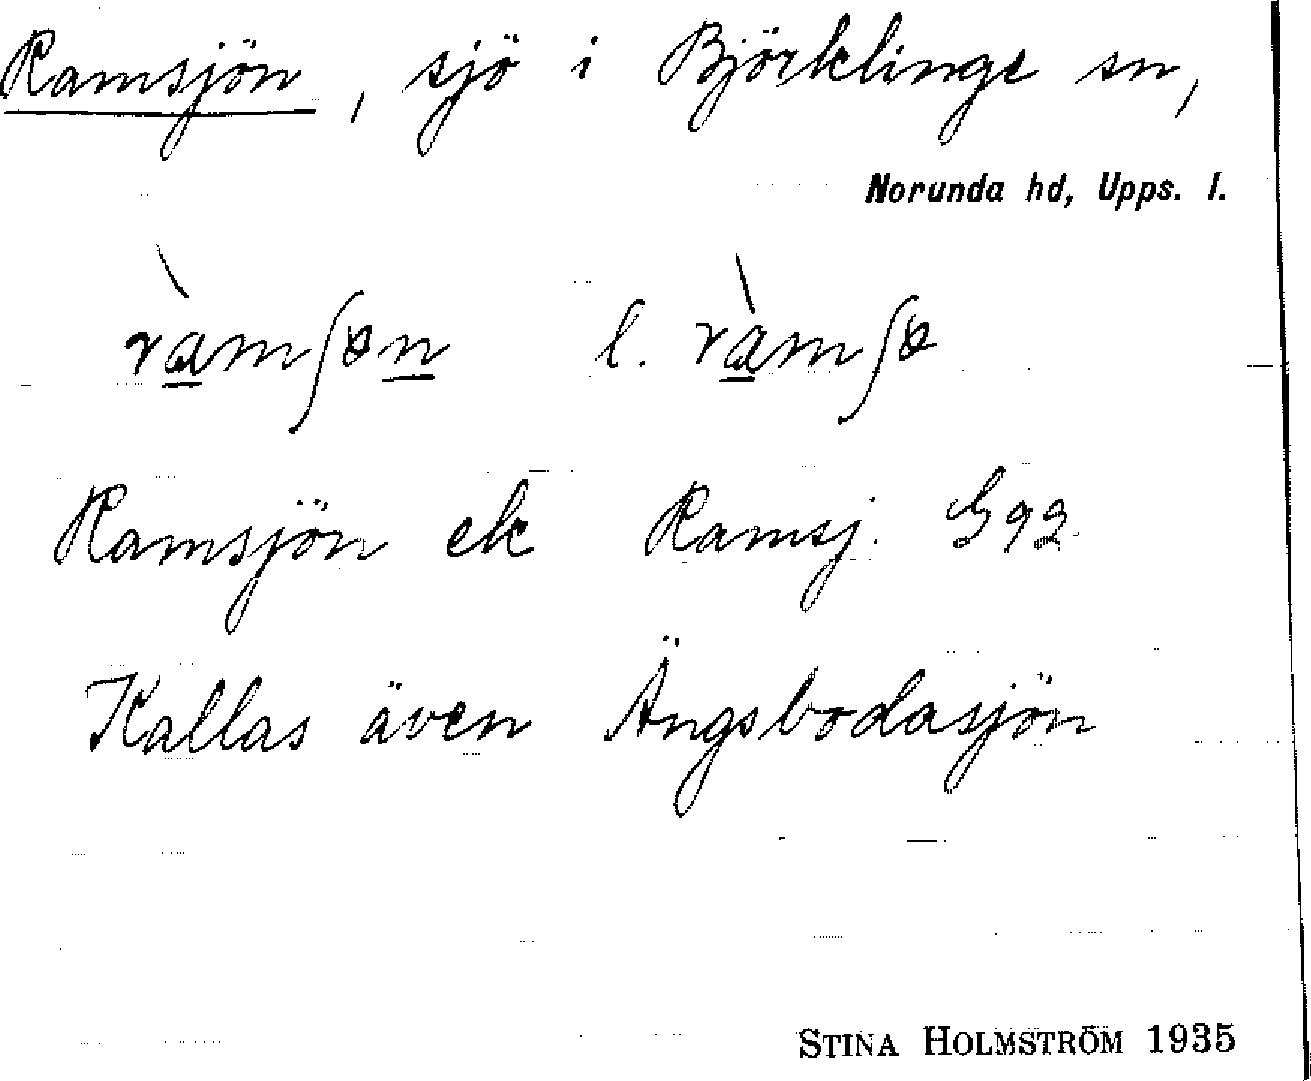 Ramsjön, sjö i Björklinge sn,
Norunda hd, Upps. l.
ràmʃøn l. ràmʃø
Ramsjön ek Ramsj. G92
Kallas även Ängsbodasjön
STINA HOLMSTRÖM 1935